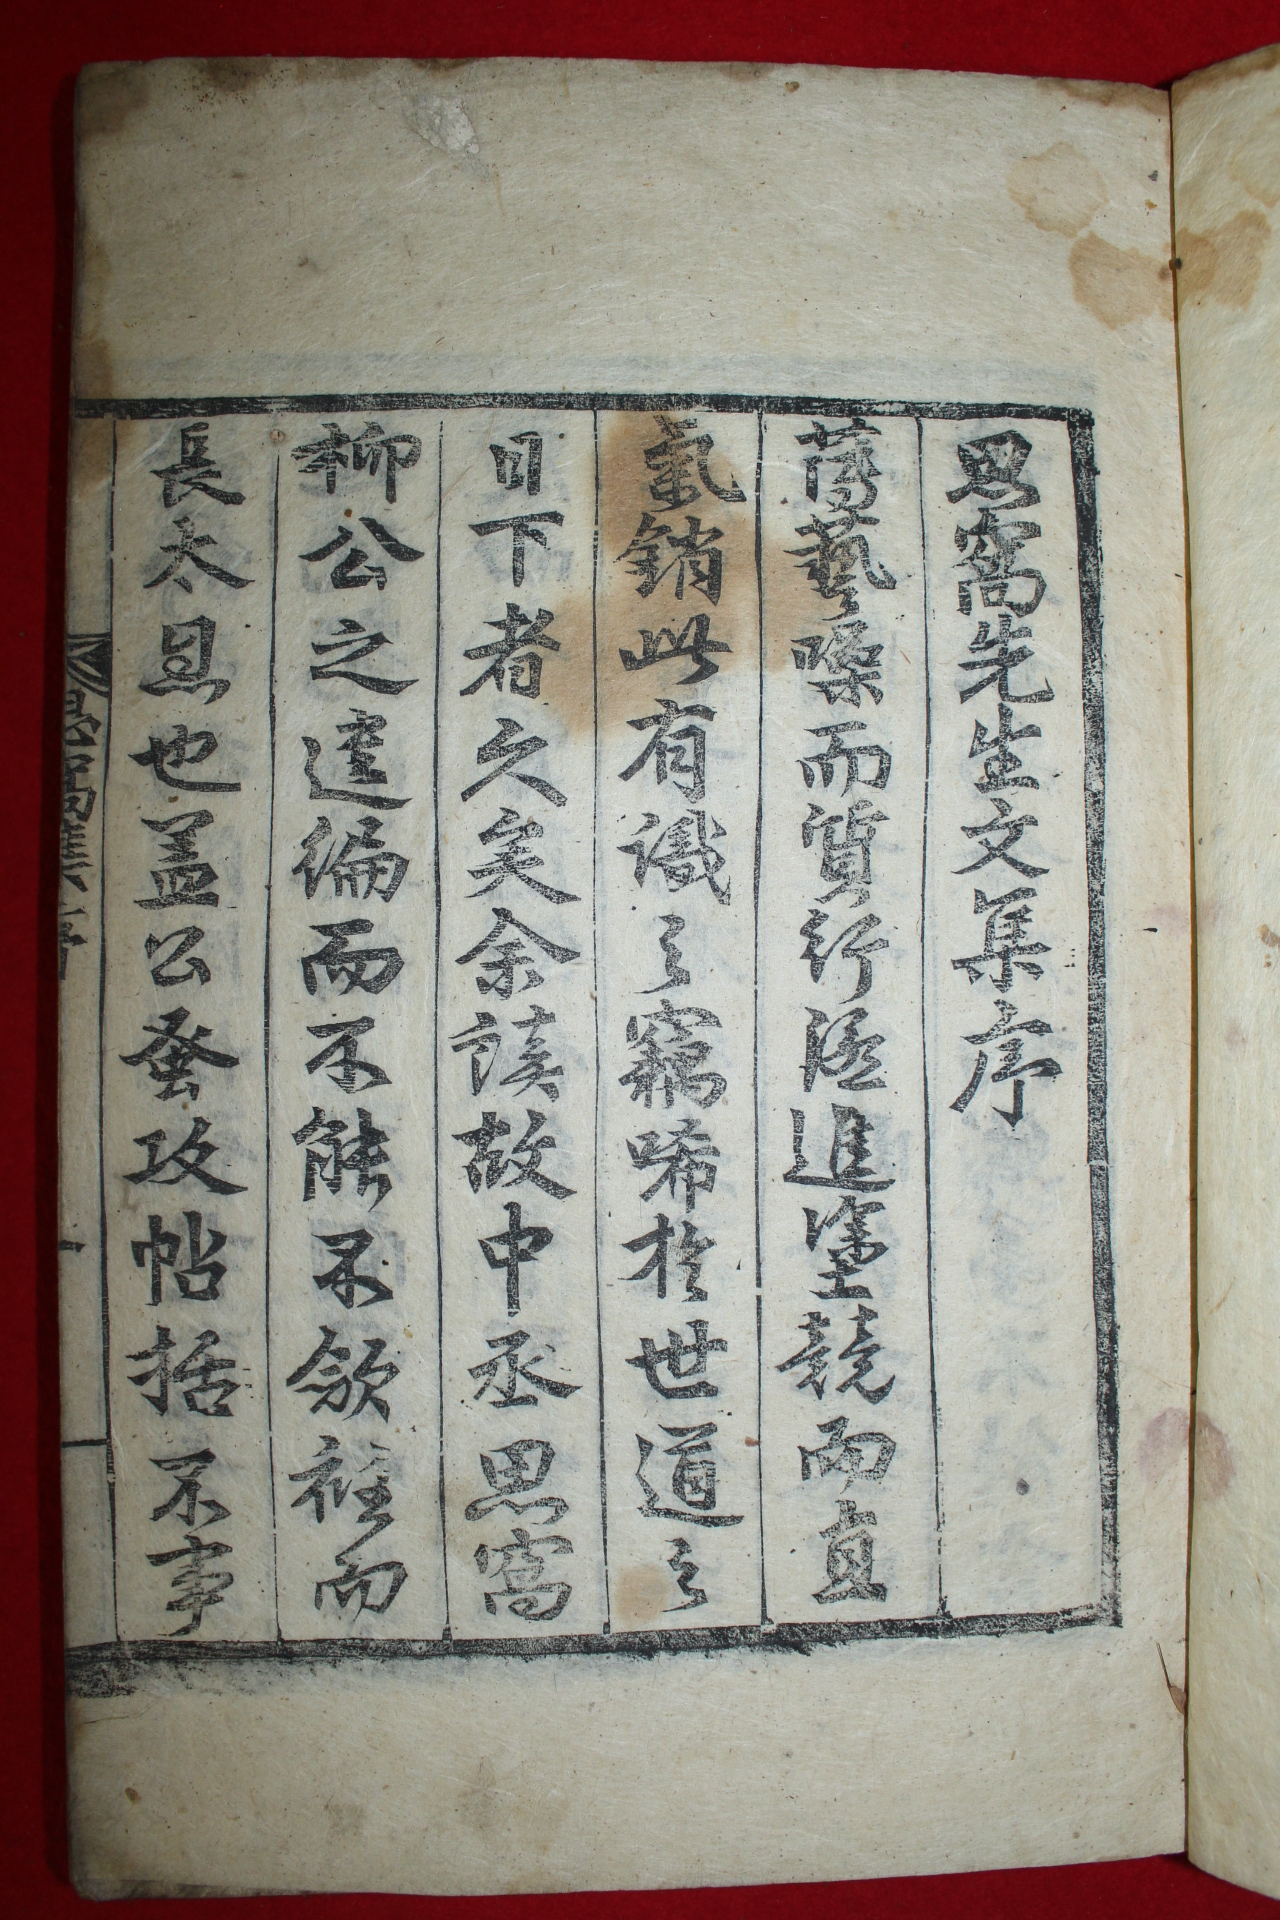 思窩先生文集序
薄藝噪而質行湮進塗競而直
氣銷此有識之竊唏於世道之
日下者久矣余讀故中丞思窩
柳公之遺編而不能不斂衽而
長太息也盖公蚤攻帖括不事
思窩集 序 一